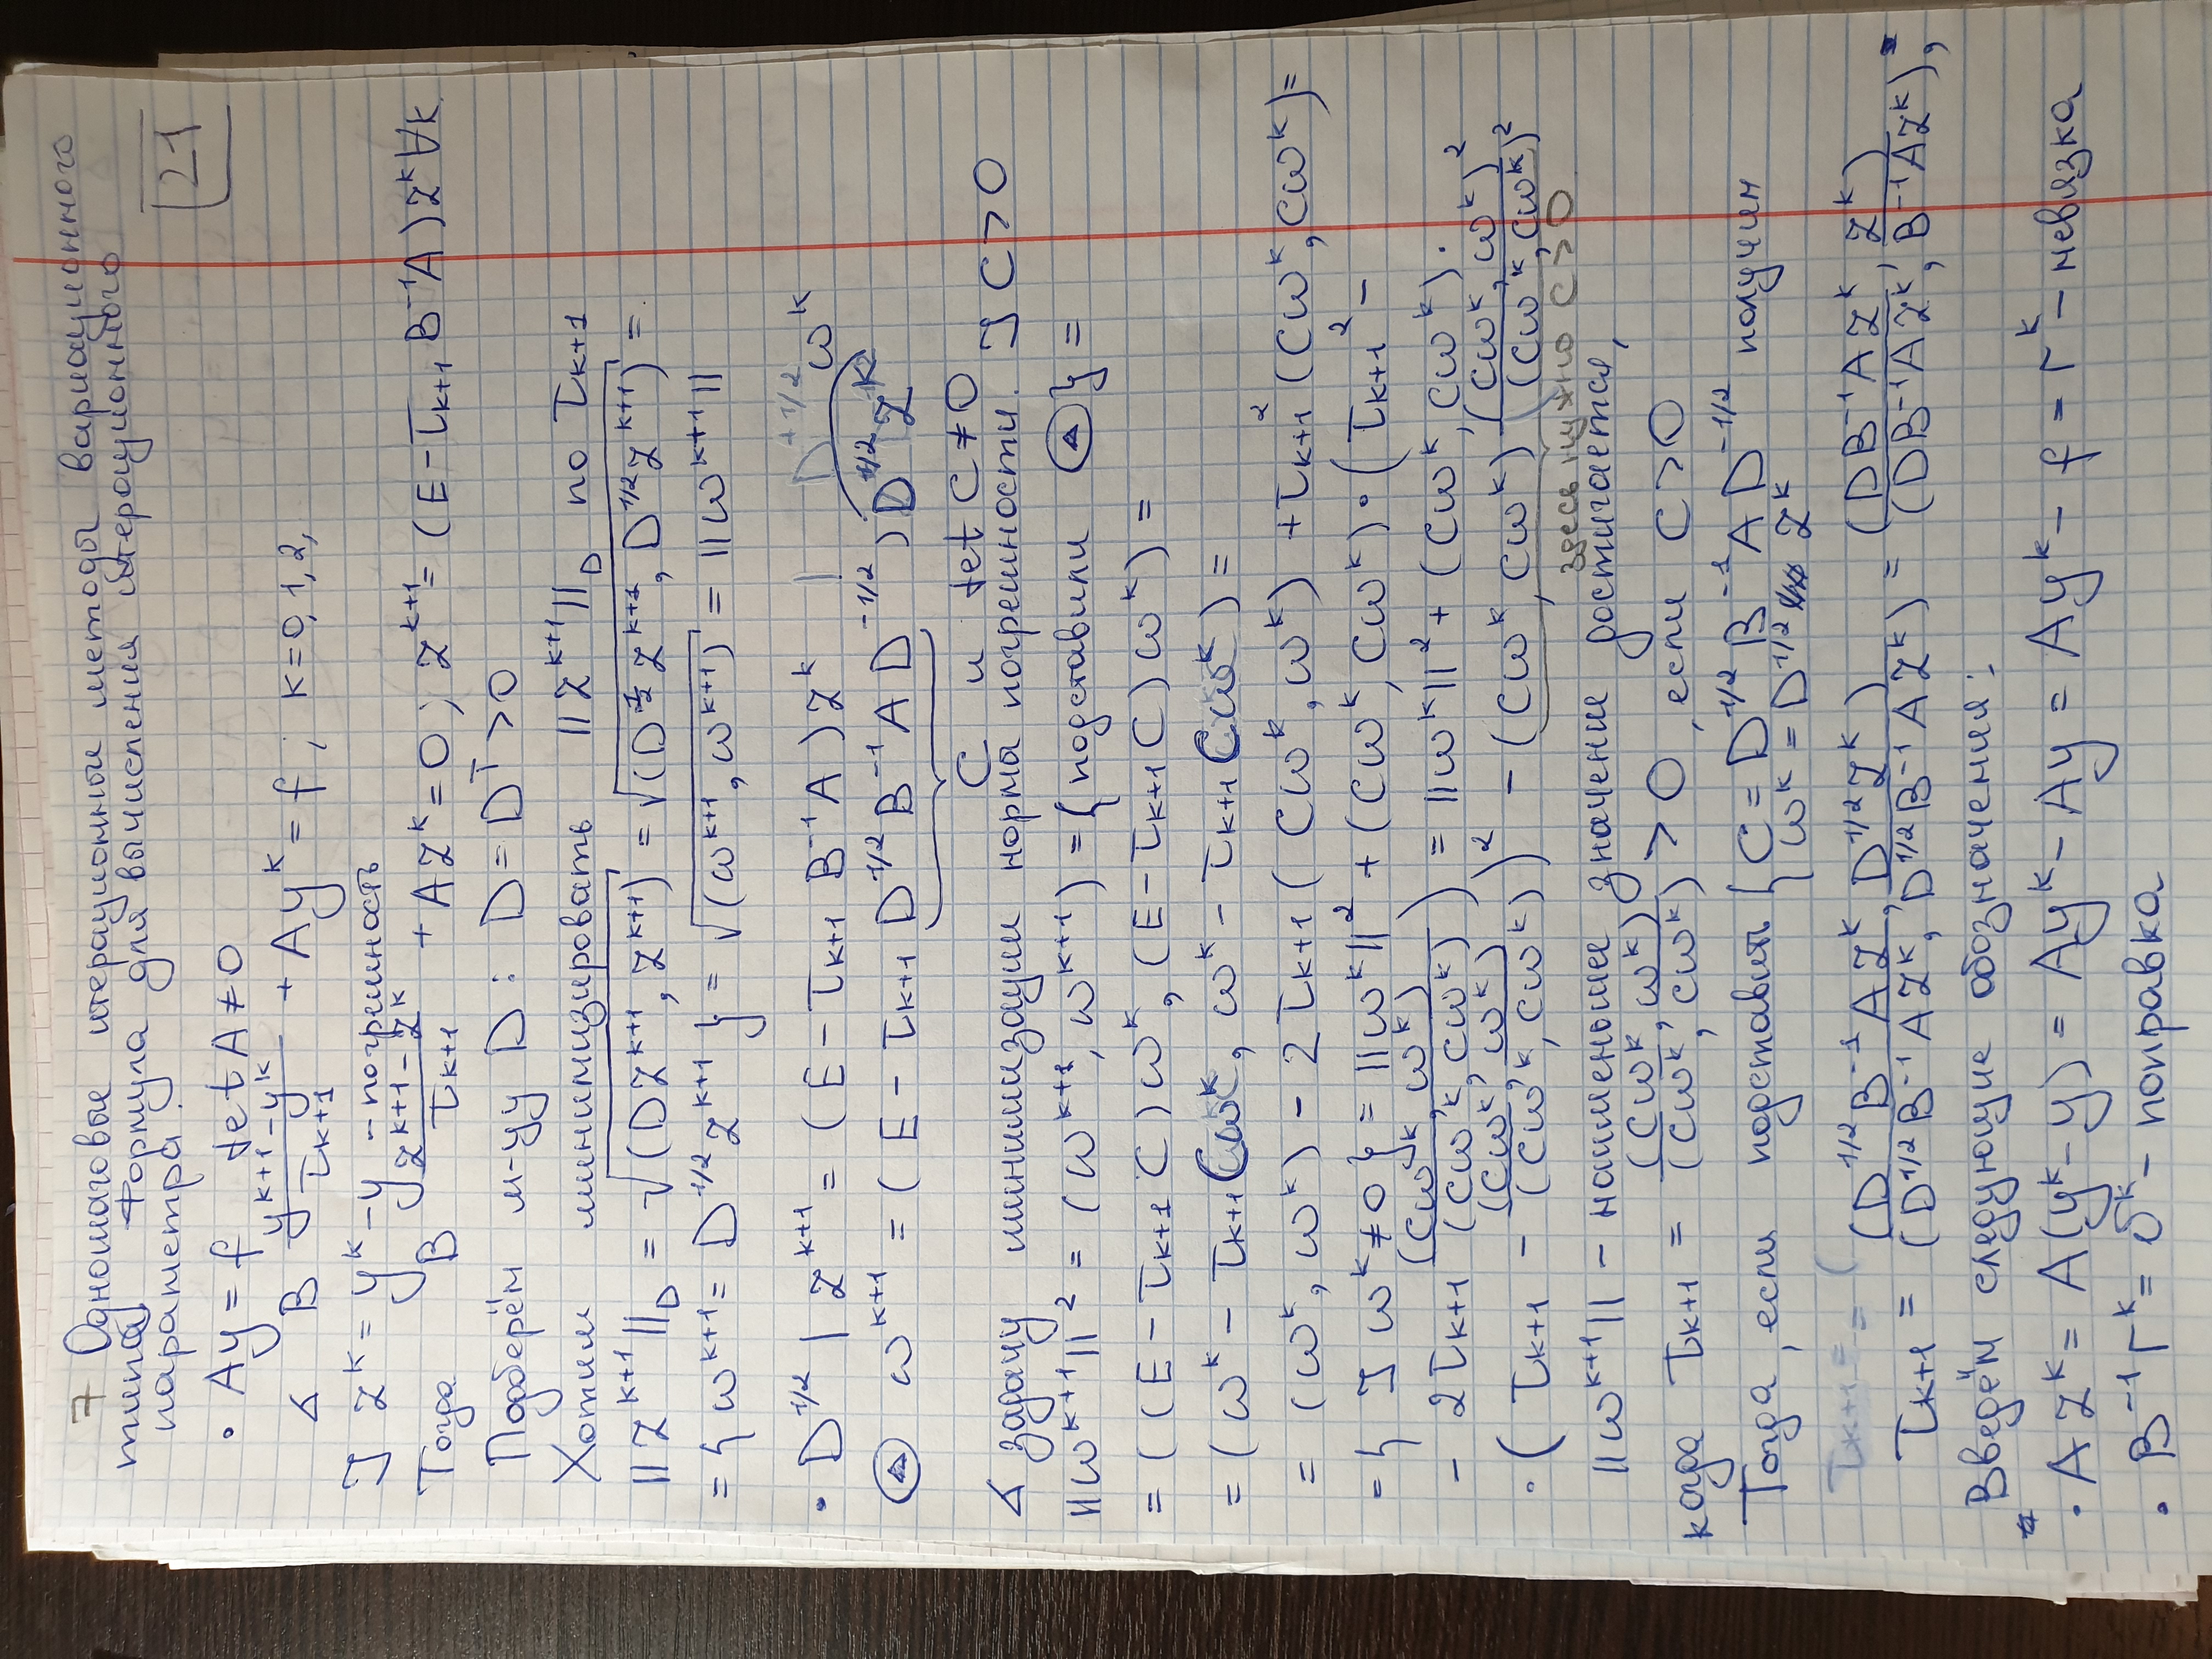 7 Одношаговые итерационные методы вариационного
типа. Формула для вычисления итерационного
параметра
21
• Ay = f   det A ≠ 0
∢ B (y^{k+1} - y^k)/τ_{k+1} + Ay^k = f ; k = 0,1,2,
] z^k = y^k - y - погрешность
Тогда B (z^{k+1} - z^k)/τ_{k+1} + Az^k = 0; z^{k+1} = (E - τ_{k+1} B^{-1}A) z^k ∀k
Подберём м-цу D: D = D^T > 0
Хотим минимизировать ||z^{k+1}||_D по τ_{k+1}
||z^{k+1}||_D = √(Dz^{k+1}, z^{k+1}) = √(D^{1/2} z^{k+1}, D^{1/2} z^{k+1}) =
= {ω^{k+1} = D^{1/2} z^{k+1}} = √(ω^{k+1}, ω^{k+1}) = ||ω^{k+1}||
• D^{1/2} | z^{k+1} = (E - τ_{k+1} B^{-1}A) z^k | D^{+1/2} ω^k
△ ω^{k+1} = (E - τ_{k+1} D^{1/2} B^{-1} A D^{-1/2}) D^{1/2} z^k
C и det C ≠ 0
∢ задачу минимизации нормы погрешности. ] C > 0
||ω^{k+1}||² = (ω^{k+1}, ω^{k+1}) = {подставили △} =
= ((E - τ_{k+1} C) ω^k, (E - τ_{k+1} C) ω^k) =
= (ω^k - τ_{k+1} Cω^k, ω^k - τ_{k+1} Cω^k) =
= (ω^k, ω^k) - 2τ_{k+1} (Cω^k, ω^k) + τ_{k+1}² (Cω^k, Cω^k) =
= {] ω^k ≠ 0} = ||ω^k||² + (Cω^k, Cω^k) · (τ_{k+1}² -
- 2τ_{k+1} (Cω^k, ω^k)/(Cω^k, Cω^k)) = ||ω^k||² + (Cω^k, Cω^k) ·
· (τ_{k+1} - (Cω^k, ω^k)/(Cω^k, Cω^k))² - (Cω^k, Cω^k) (Cω^k, ω^k)²/(Cω^k, Cω^k)²
здесь нужно C > 0
||ω^{k+1}|| - наименьшее значение достигается,
когда τ_{k+1} = (Cω^k, ω^k)/(Cω^k, Cω^k) > 0, если C > 0
Тогда, если подставить {C = D^{1/2} B^{-1} A D^{-1/2} получим
ω^k = D^{1/2} z^k
τ_{k+1} = (
τ_{k+1} = (D^{1/2} B^{-1} A z^k, D^{1/2} z^k)/(D^{1/2} B^{-1} A z^k, D^{1/2} B^{-1} A z^k) = (DB^{-1}Az^k, z^k)/(DB^{-1}Az^k, B^{-1}Az^k),
Введём следующие обозначения:
• Az^k = A(y^k - y) = Ay^k - Ay = Ay^k - f = r^k - невязка
• B^{-1} r^k = δ^k - поправка